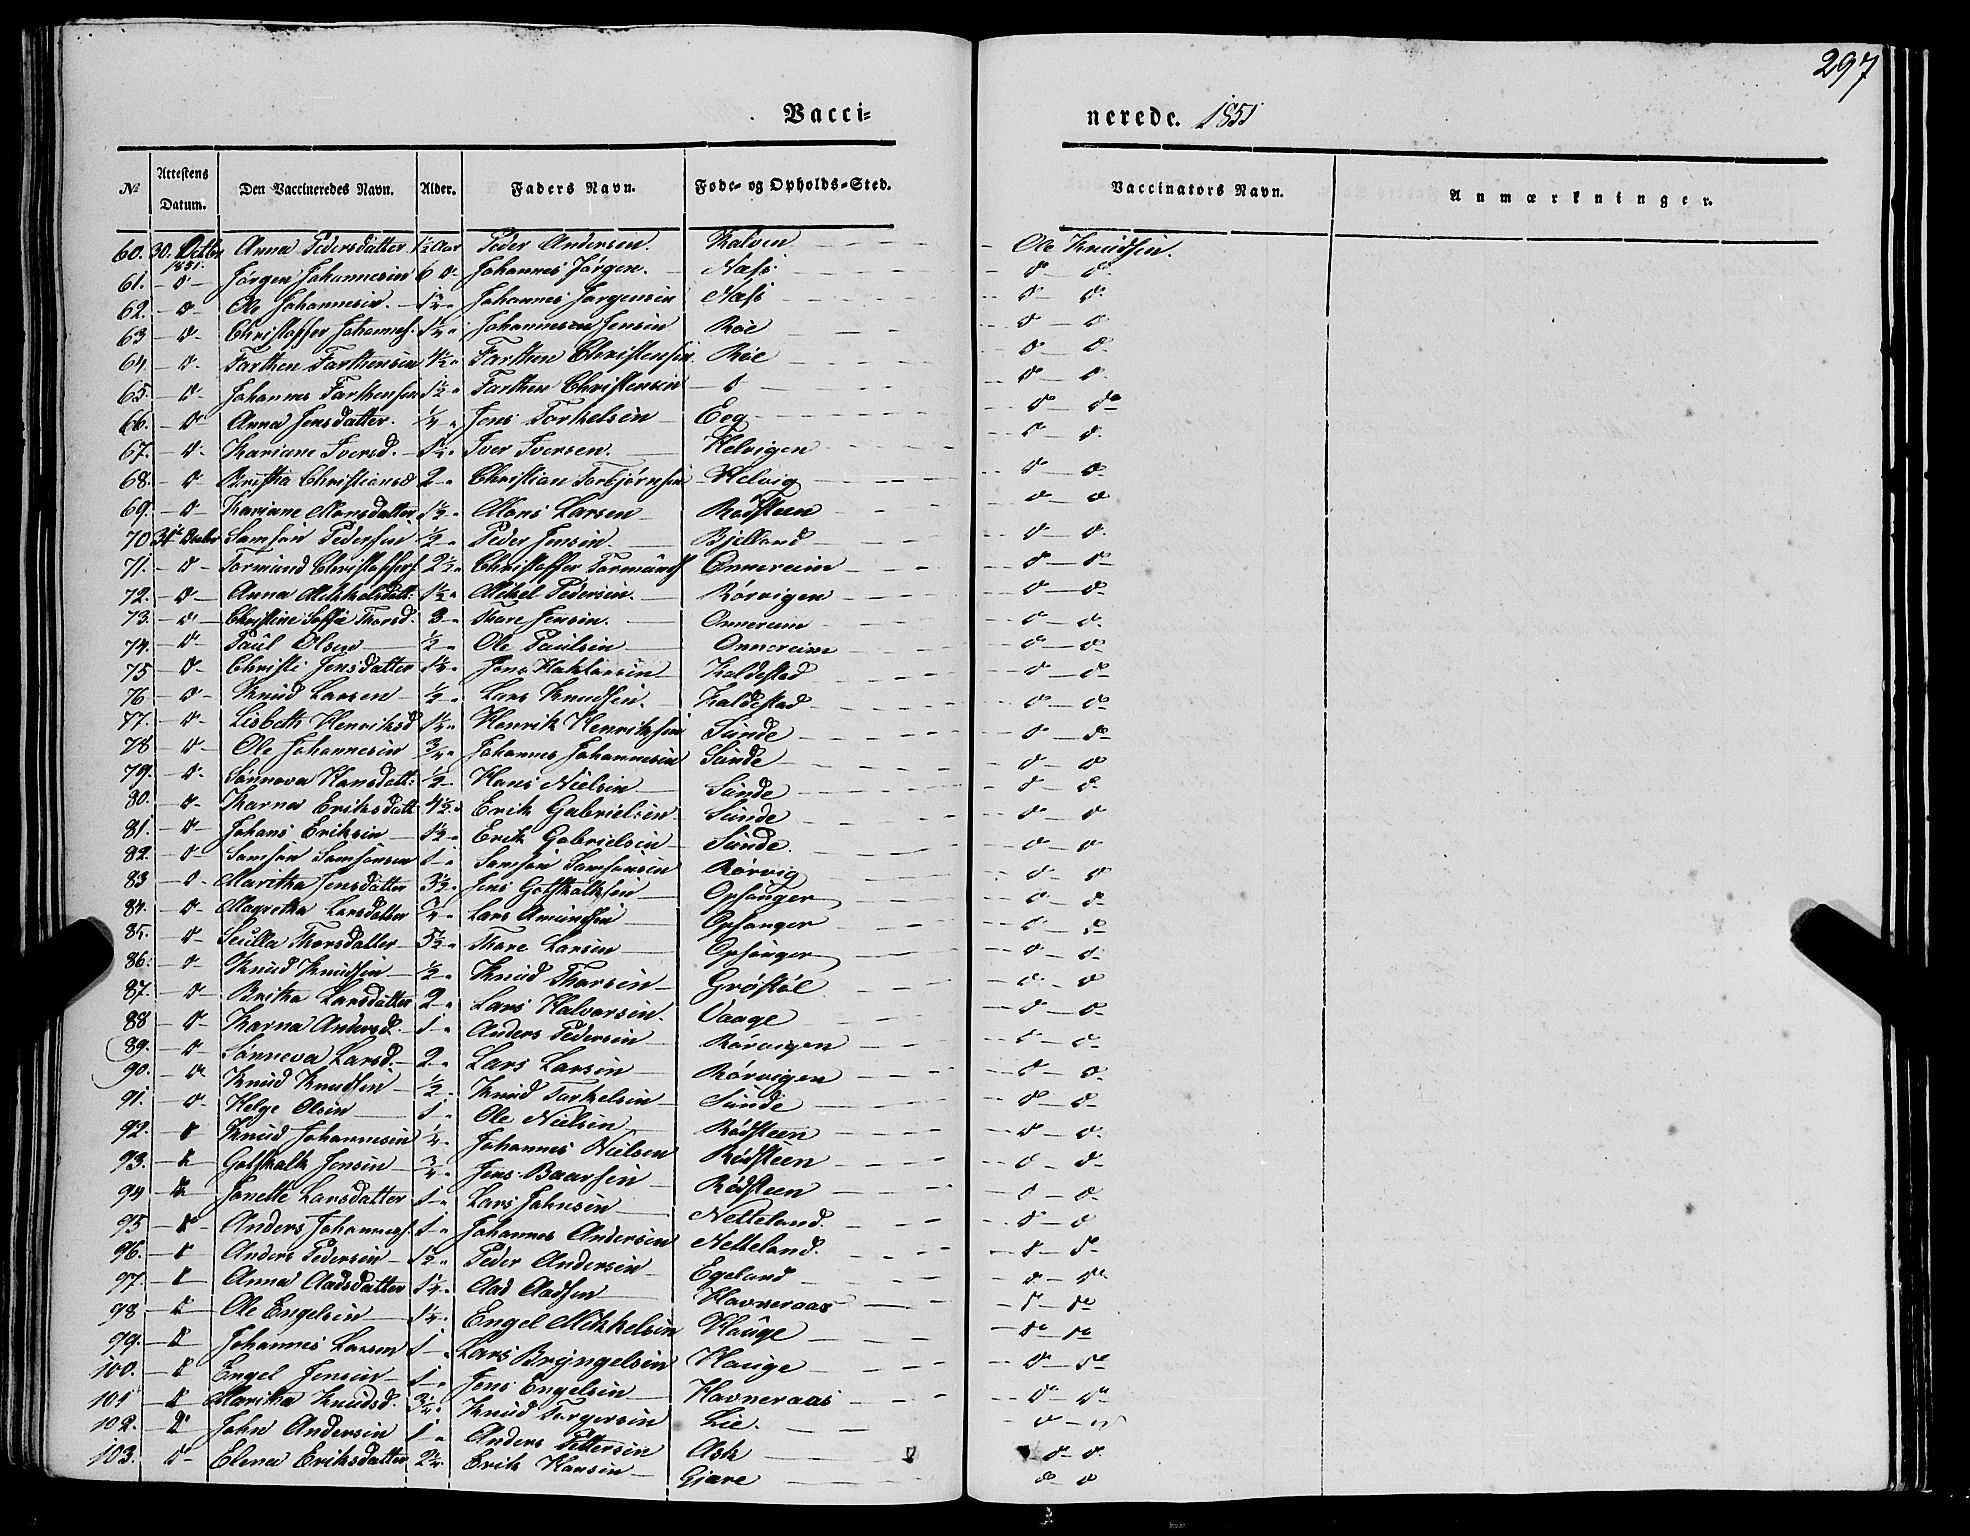 297
Vacci= nerede. 1851
No Attestens Datum. Den Vaccineredes Navn. Alder. Faders Navn. Føde- og Opholds-Sted. Vaccinators Navn. Anmærkninger.
60. 30. Octbr 1851. Anna Pedersdatter 1½ Aar Peder Andersen. Kalven Ole Knudsen.
61. - d - Jørgen Johannesen 6 d- Johannes Jørgen. Næss d - d
62. - d - Ole Johannesen. Johannes Jørgensen Næss d - d
63 - d - Christoffer Johannes. Johannes Jensen Røe d - d
64. - d - Tarthen Tarthensen 4½ " Tarthen Christensen Røe d - d
65. - d - Johannes Tarthensen 1½ " Tarthen Christensen - d - d - d
66. - d - Anna Jensdatter. ¼ " Jens Torkelsen Eeg d - do
67. - d - Kariane Iversd. Iver Iversen. Helvigen d - d
68. - d Britha Christiansd 2 - " Christian Torbjørnsen Helvig d - d
69. - d - Kariane Monsdatter 1½ " Mons Larsen Rødsteen d - d
70 31te Samson Pedersen ½ - " Peder Jensen Bjelland d - d
71. - d - Tormund Christoffers. 2½ " Christoffer Tormunds Onnereim d - d
72. - d - Anna Mikkelsdatt. 1½ " Mikel Pedersen. Rørvigen d - d
73. - d - Christine Sofie Thorsd. 3 - Thore Jensen. Onnereim d - d
74. - d - Paul Olsen ½ - " Ole Paulsen Onnereim d - d
75 - d - Christi Jensdatter Jens Haktorsen Kaldestad d - do
76 - d - Knud Larsen ½ - " Lars Knudsen. Kaldestad d - do
77. - d - Lisbeth Henriksd Henrik Henriksen Sunde d - do
78 - d - Ole Johannesen ¾ " Johannes Johannesen Sunde d - d
79. - d - Sønneva Hansdatt. ½ - Hans Nielsen Sunde d - d
80. - d - Karna Eriksdatt 4½ " Erik Gabrielsen Sunde d - d
81. - d - Johans Eriksen 1½ " Erik Gabrielsen Sunde. d - d
82. - d - Samson Samsonsen 1 - " Samson Samsonsen Rørvig d - d
83 - d - Maritha Jensdatter 3½ " Jens Gotskalksen Opsanger d - d
84. - d - Magretha Larsdatter ¾ " Lars Amundsen Opsanger d - d
85. - d - Thorsdatter Thore Larsen Opsanger d - d
86. - d - Knud Knudsen ½ - " Knud Thorsen Grøstøl d - d
87. - d - Britha Larsdatter 2 - " Lars Halvorsen. Vaage d - d
88 - d - Karna Andersd. 1 - " Anders Pedersen Rørvigen d - d
89. - d - Sønneva Larsd. 2 - " Lars Larsen Rørvigen d - d
90. - d Knud Knudsen ½ - " Knud Torkelsen Sunde d - d
91. - d - Helge Olsen 1 " Ole Nielsen Rødsteen d - d
92. - d Knud Johannesen ¼ " Johannes Nielsen Rødsteen d - d
93. - d Gotskalk Jensen ¾ " Jens Baarsen Rødsteen d - d
94 - d Jonette Larsdatter 1 - " Lars Johnsen Netteland. d - d
95 - d - Anders Johannes. 1 - " Johannes Andersen Netteland. d - do
96. - d Anders Pedersen 1½ " Peder Andersen Egeland d - do
97. - d Anna Aadsdatter 1¼ " Aad Aadsen Havneraas d - do
98 - d - Ole Engelsen 1¼ " Engel Mikkelsen Hauge do - do
99. - d Johannes Larsen 1 - " Lars Bryngelsen Hauge d - do
100. - d Engel Jensen 1 - " Jens Engelsen Havneraas d - do
101 - d Maritha Knudsd. 3¼ " Knud Torgersen Lie. d -
102. - d John Andersen 1 " Anders Pettersen Ask d - d
103. d - Elena Eriksdatter 2¼ Erik Hansen Gjære d d